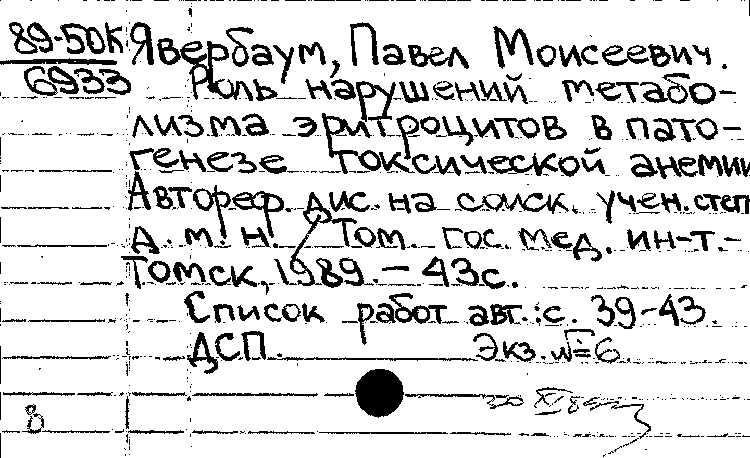 89-50К Явербаум, Павел Моисеевич.
6933 Роль нарушений метабо-
лизма эритроцитов в пато-
генезе токсической анемии
Автореф. дис. на соиск. учен. степ
д. м. н. Том. гос. мед. ин-т.-
Томск, 1989. - 43 с.
Список работ авт.: с. 39-43.
ДСП. Экз. №=6
8